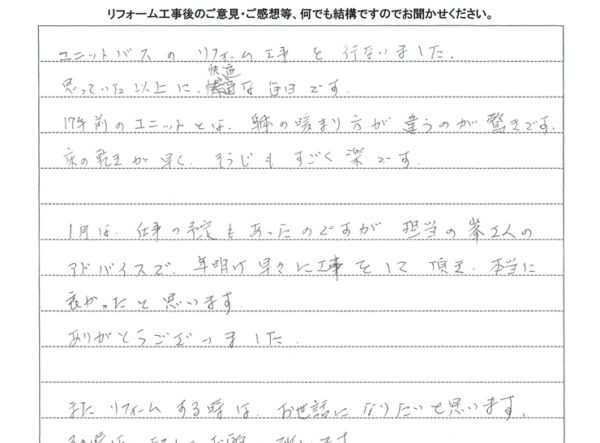 リフォーム工事後のご意見・ご感想等、何でも結構ですのでお聞かせください。
ユニットバスの リフォーム工事 を 行ないました.
思っていた以上に、快適な毎日です。
17年前のユニットとは、身体の暖まり方が 違うのが 驚きです.
床の乾きが早く、そうじも すごく 楽です.
1月は、仕事の予定もあったのですが 担当の峯さんの
アドバイスで、年明け早々に工事をして頂き、本当に
良かったと思います.
ありがとうございました.
また リフォーム する時は、お世話に なりたいと思います.